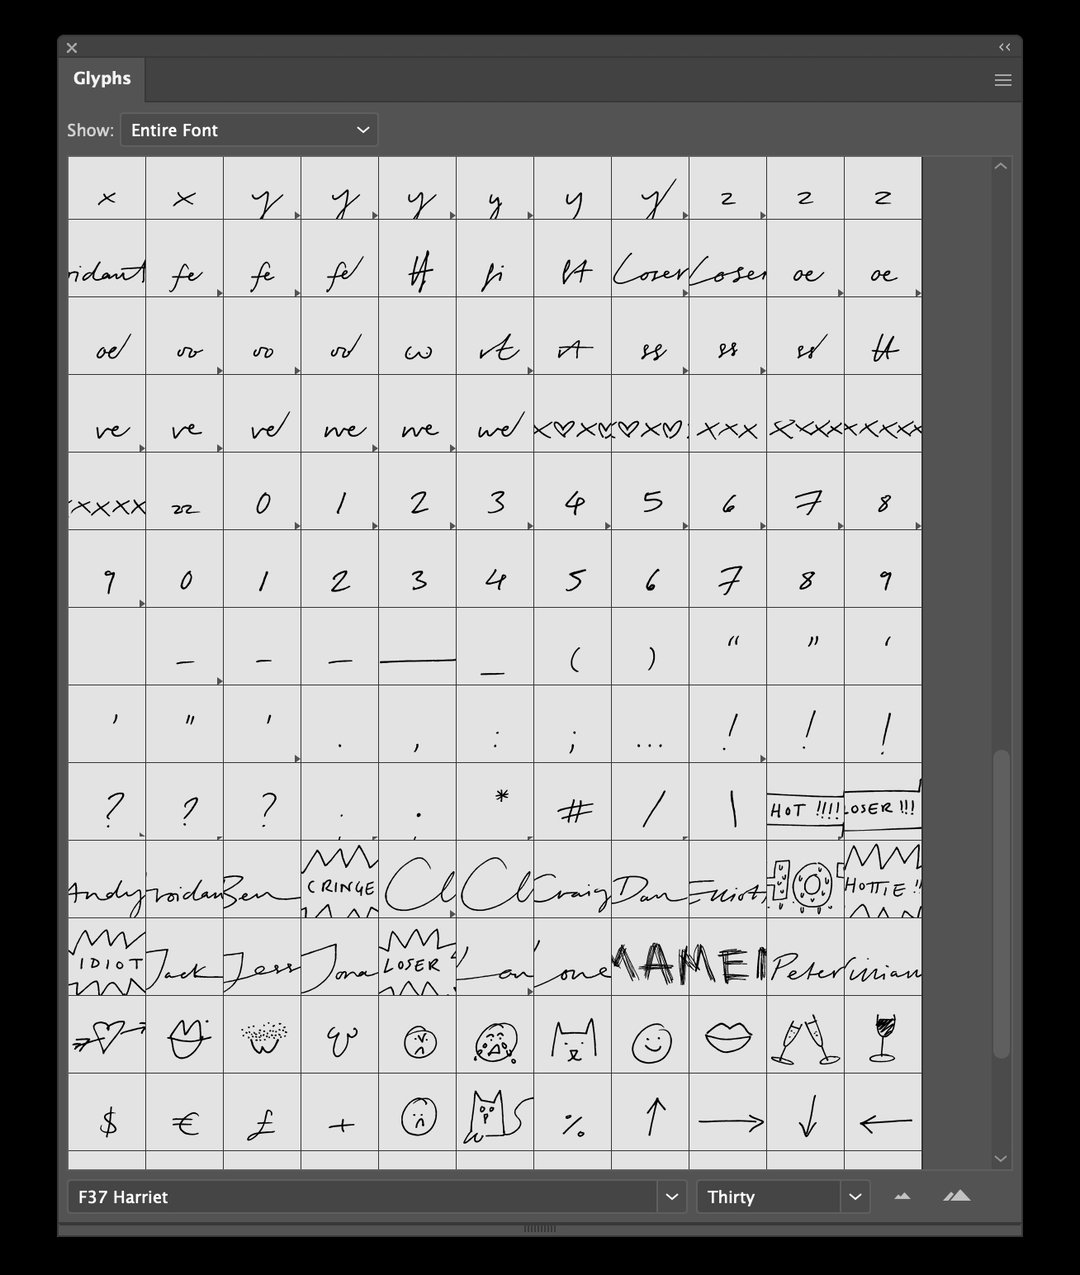 Glyphs
Show: Entire Font
x x y y y y y y z z z
fe fe fe fi Loser Loser oe oe
oe oo oo oo rt ss ss ss tt
ve ve ve we we we x♡x ♡x♡ xxx xxxx xxxxx
xxxxx zz 0 1 2 3 4 5 6 7 8
9 0 1 2 3 4 5 6 7 8 9
– - – — _ ( ) “ ” ‘
’ " ' . , : ; … ! ! !
? ? ? · * # / | HOT !!!! LOSER !!!
Andy Ben CRINGE Cl Cl Craig Dan Elliot HOTTIE !!
IDIOT Jack Jess Jona LOSER Peter
$ € £ + % ↑ → ↓ ←
F37 Harriet Thirty